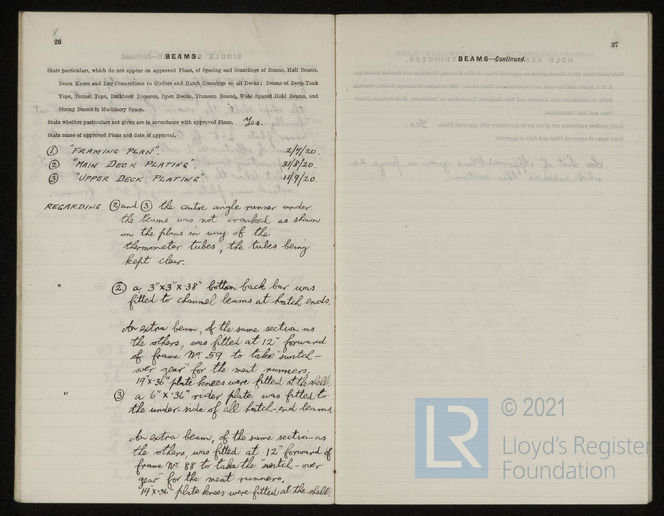 26
BEAMS.
State particulars, which do not appear on approved Plans, of Spacing and Scantlings of Beams, Half Beams,
Beam Knees and Lug Connections to Girders and Hatch Coamings on all Decks; Beams of Deep Tank
Tops, Tunnel Tops, Bulkhead Recesses, Open Decks, Transom Beams, Wide Spaced Hold Beams, and
Strong Beams in Machinery Space.
State whether particulars not given are in accordance with approved Plans. Yes.
State name of approved Plans and date of approval.
① "FRAMING PLAN" 2/7/20.
② "MAIN DECK PLATING". 31/8/20.
③ "UPPER DECK PLATING" 11/9/20.
REGARDING ② and ③ the centre angle runner under
the beams was not cranked as shewn
on the plans in way of the
thermometer tubes, the tubes being
kept clear.
② a 3" x 3" x .38" bottom back bar was
fitted to channel beams at hatch ends.
An extra beam, of the same section as
the others, was fitted at 12" forward
of frame No. 59 to take "switch-
over gear" for the meat runners.
19" x .36" plate knees were fitted at the shell.
③ a 6" x .36" rider plate was fitted to
the under side of all hatch-end beams.
An extra beam, of the same section as
the others, was fitted at 12" forward of
frame No. 88 to take the "switch-over
gear" for the meat runners.
19" x .36" plate knees were fitted at the shell.
27
BEAMS—Continued.
© 2021
LR
Lloyd's Register
Foundation